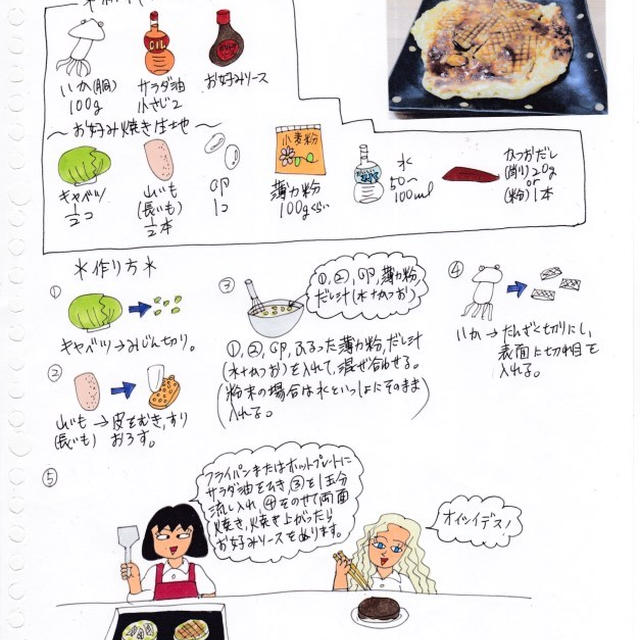 OIL
いか(胴)
100g
サラダ油
小さじ2
お好みソース
〜お好み焼き生地〜
キャベツ
1/2コ
山いも
(長いも)
1/2本
卵
1コ
小麦粉
薄力粉
100gぐらい
水
50〜
100ml
かつおだし
(削り)20g
or
(粉)1本
＊作り方＊
①
キャベツ→みじん切り。
②
山いも→皮をむき、すり
(長いも) おろす。
③
①,②,卵,薄力粉
だし汁(水+かつお)
①,②,卵,ふるった薄力粉,だし汁
(水+かつお)を入れて、混ぜ合わせる。
(粉末の場合は水といっしょにそのまま
入れる。)
④
いか→たんざく切りにし、
表面に切れ目を
入れる。
⑤
フライパンまたはホットプレートに
サラダ油をひき、③を1玉分
流し入れ、④をのせて両面
焼き、焼き上がったら
お好みソースをぬります。
オイシイデス！